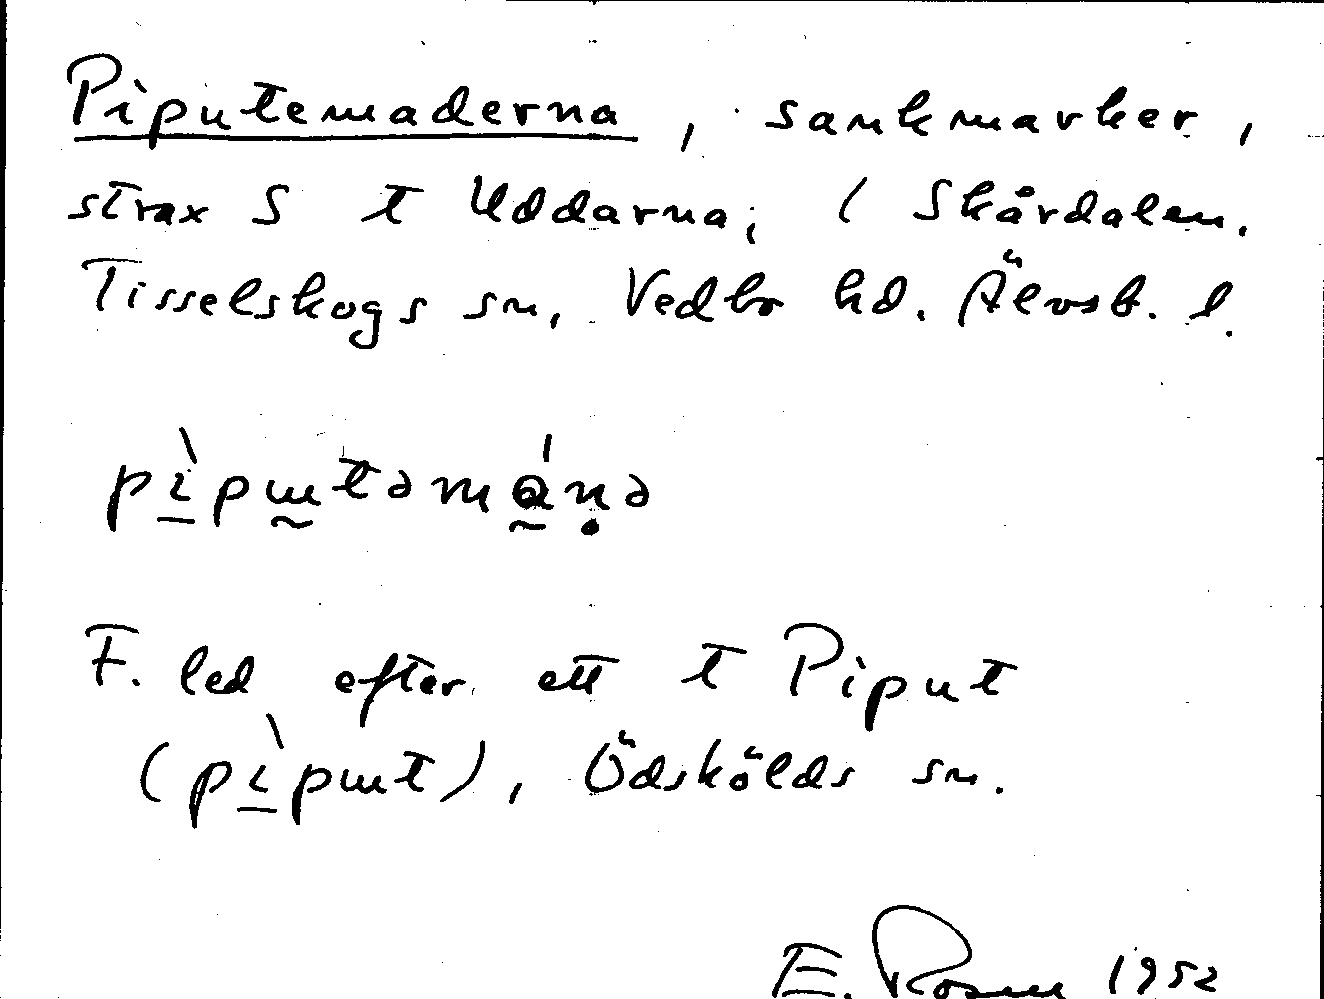 Piputemaderna, sankmarker,
strax S t Uddarna, ( Skårdalen.
Tisselskogs sn, Vedbo hd. Älvsb. l.
pìpɯtəmánə
F. led efter ett t Piput
(pìpɯt), Ödskölds sn.
E. Rosen 1952